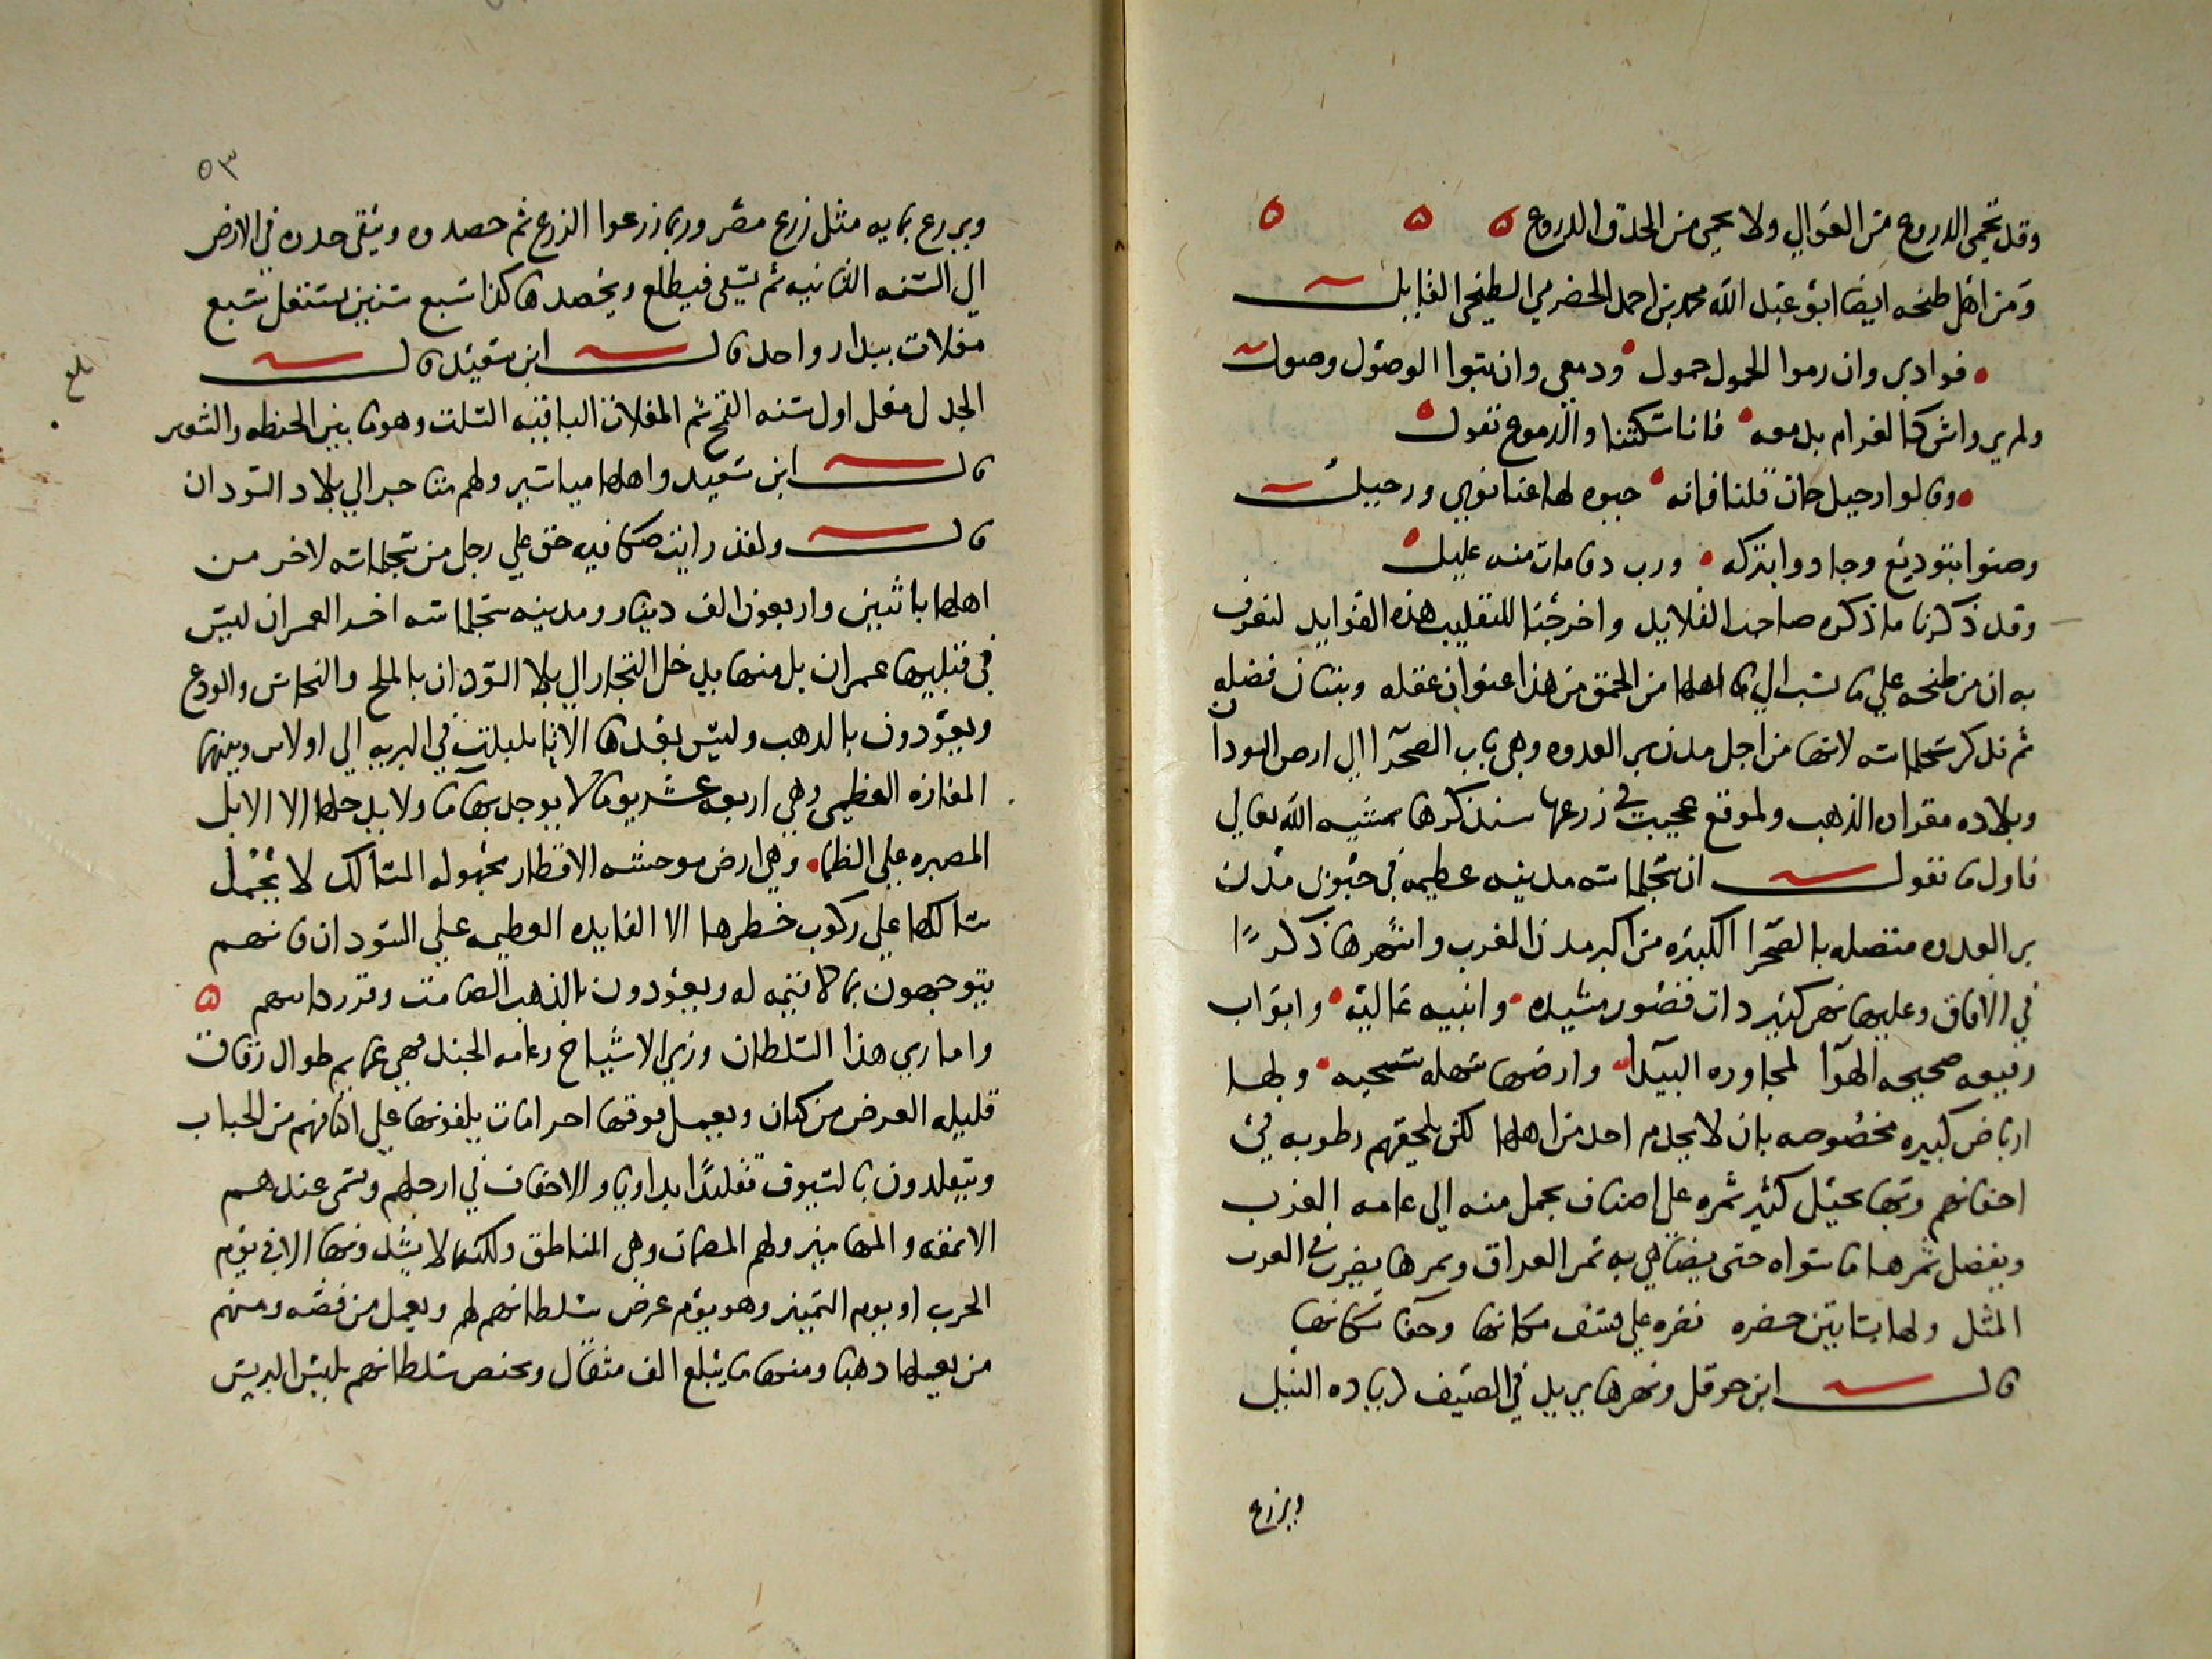 وقد تحمي الدروع من العوالي ولا يحمي من الحدق الدروع ۵ ۵ ۵
ومن اهل طنجه ايضا ابو عبد الله محمد بن احمد الحضرمي الطنجي القايل
فوادي وان رموا الحمول حمول ودمعي وان بتوا الوصول وصول
ولم ير واش كالغرام بدمعه فانا سكتنا والدموع تقول
وقالوا رحيل حان قلنا فانه حبوه لها عنا نوي ورحيل
وضنوا بتوديع وجادوا بتركه ورب دوا مات منه عليل
وقد ذكرنا ما ذكره صاحب القلايد واخرجنا للتقليب هذه الفوايد لنعرف
به ان من طنجه علي ما نسب الي اهلها من الحمق من هذا عنوان عقله وبيان فضله
ثم نذكر سجلماسه لانها من اجل مدن بر العدوه وهي باب الصحرا الي ارض السودان
وبلاده مقر الذهب ولموقع عجيب في زرعها سنذكرها بمشيه الله تعالي
فاول ما نقول ان سجلماسه مدينه عظيمه في جنوبي مدن
بر العدوه متصله بالصحرا الكبيره من اكبر مدن المغرب واشهرها ذكرًا
في الافاق وعليها نهر كبير ذات قصور مشيده وابنيه عاليه وابواب
رفيعه صحيحه الهوآ لمجاوره البيدا وارضها سهله سبخيه ولها
ارباض كبيره مخصوصه بان لا يجذم احد من اهلها لكن تلحقهم رطوبه في
اجفانهم وبها نخيل كثير ثمره علي اصناف يحمل منه الي عامه الغرب
ويفضل ثمرها ما سواه حتي يضاهي به تمر العراق وتمرها يضرب في الغرب
المثل ولها بساتين خضره نضره علي سكانها
قال ابن حوقل ونهرها يزيد في الصيف زياده النيل
ويزرع
٥٣
ويزرع بمايه مثل زرع مصر وربما زرعوا الزرع ثم حصدوه ويبقي جدره في الارض
الي السنه الثانيه ثم يسقي فيطلع ويحصد هاكذا سبع سنين يستغل سبع
مغلات ببدار واحد قال ابن سعيد قال
الجدل مغل اول سنه القمح ثم المغلات الباقيه السلت وهو ما بين الحنطه والشعير
بلغ
قال ابن سعيد واهلها مياسير ولهم متاجر الي بلاد السودان
قال ولقد رايت صكا فيه حق علي رجل من سجلماسه لاخر من
اهلها باثنين واربعون الف دينار ومدينه سجلماسه اخر العمران ليس
في قبليها عمران بل منها يدخل التجار الي بلاد السودان بالملح والنحاس والودع
ويعودون بالذهب وليس بعدها الا في البريه الي اولاس وبينهما
المفازه العظمي وهي اربعه عشر يوما لا يوجد بها ما ولا يدخلها الا الابل
المصبره علي الظما وهي ارض موحشه الاقطار مجهوله المسالك لا يحمل
سالكها علي ركوب خطرها الا الفايده العظيمه علي السودان فانهم
يتوجهون بما لا قيمه له ويعودون بالذهب الصامت وقر دوابهم ۵
واما زي هذا السلطان وزي الاشياخ وعامه الجند فهي عمايم طوال رقاق
قليله العرض من كتان ويعمل فوقها احرامات يلفونها علي اكتافهم من الجباب
ويتقلدون بالسيوف تقليدًا بداويا والاخفاف في ارجلهم وتسمي عندهم
الانمقه والمهاميز ولهم المضمات وهي المناطق ولكنها لا يشدونها الا في يوم
الحرب او يوم التمييز وهو يوم عرض سلطانهم لهم ويعمل من فضه ومنهم
من يعملها دهبا ومنها ما يبلغ الف مثقال ويختص سلطانهم بلبس البرنس